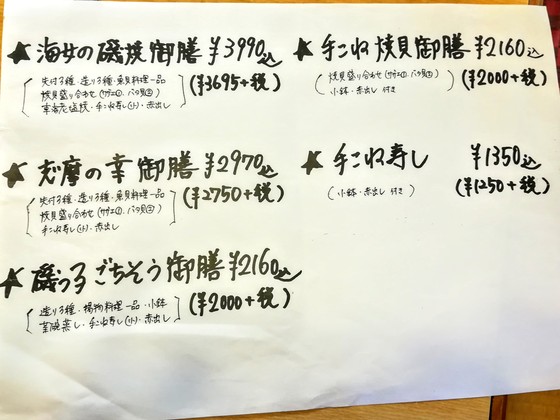 ★ 海女の磯焼御膳 ¥3990込
(¥3695+税)
先付3種・造り3種・魚貝料理一品
焼貝盛り合わせ(サザエ①、バタ貝②)
手こね寿し(小)・赤出し
★ 志摩の幸御膳 ¥2970込
(¥2750+税)
先付3種・造り3種・魚貝料理一品
焼貝盛り合わせ(サザエ①、バタ貝②)
手こね寿し(小)・赤出し
★ 磯っ子ごちそう御膳 ¥2160込
(¥2000+税)
造り3種・揚物料理一品・小鉢
茶碗蒸し・手こね寿し(小)・赤出し
★ 手こね焼貝御膳 ¥2160込
(¥2000+税)
焼貝盛り合わせ(サザエ①、バタ貝②)
小鉢・赤出し 付き
★ 手こね寿し ¥1350込
(¥1250+税)
(小鉢・赤出し 付き)